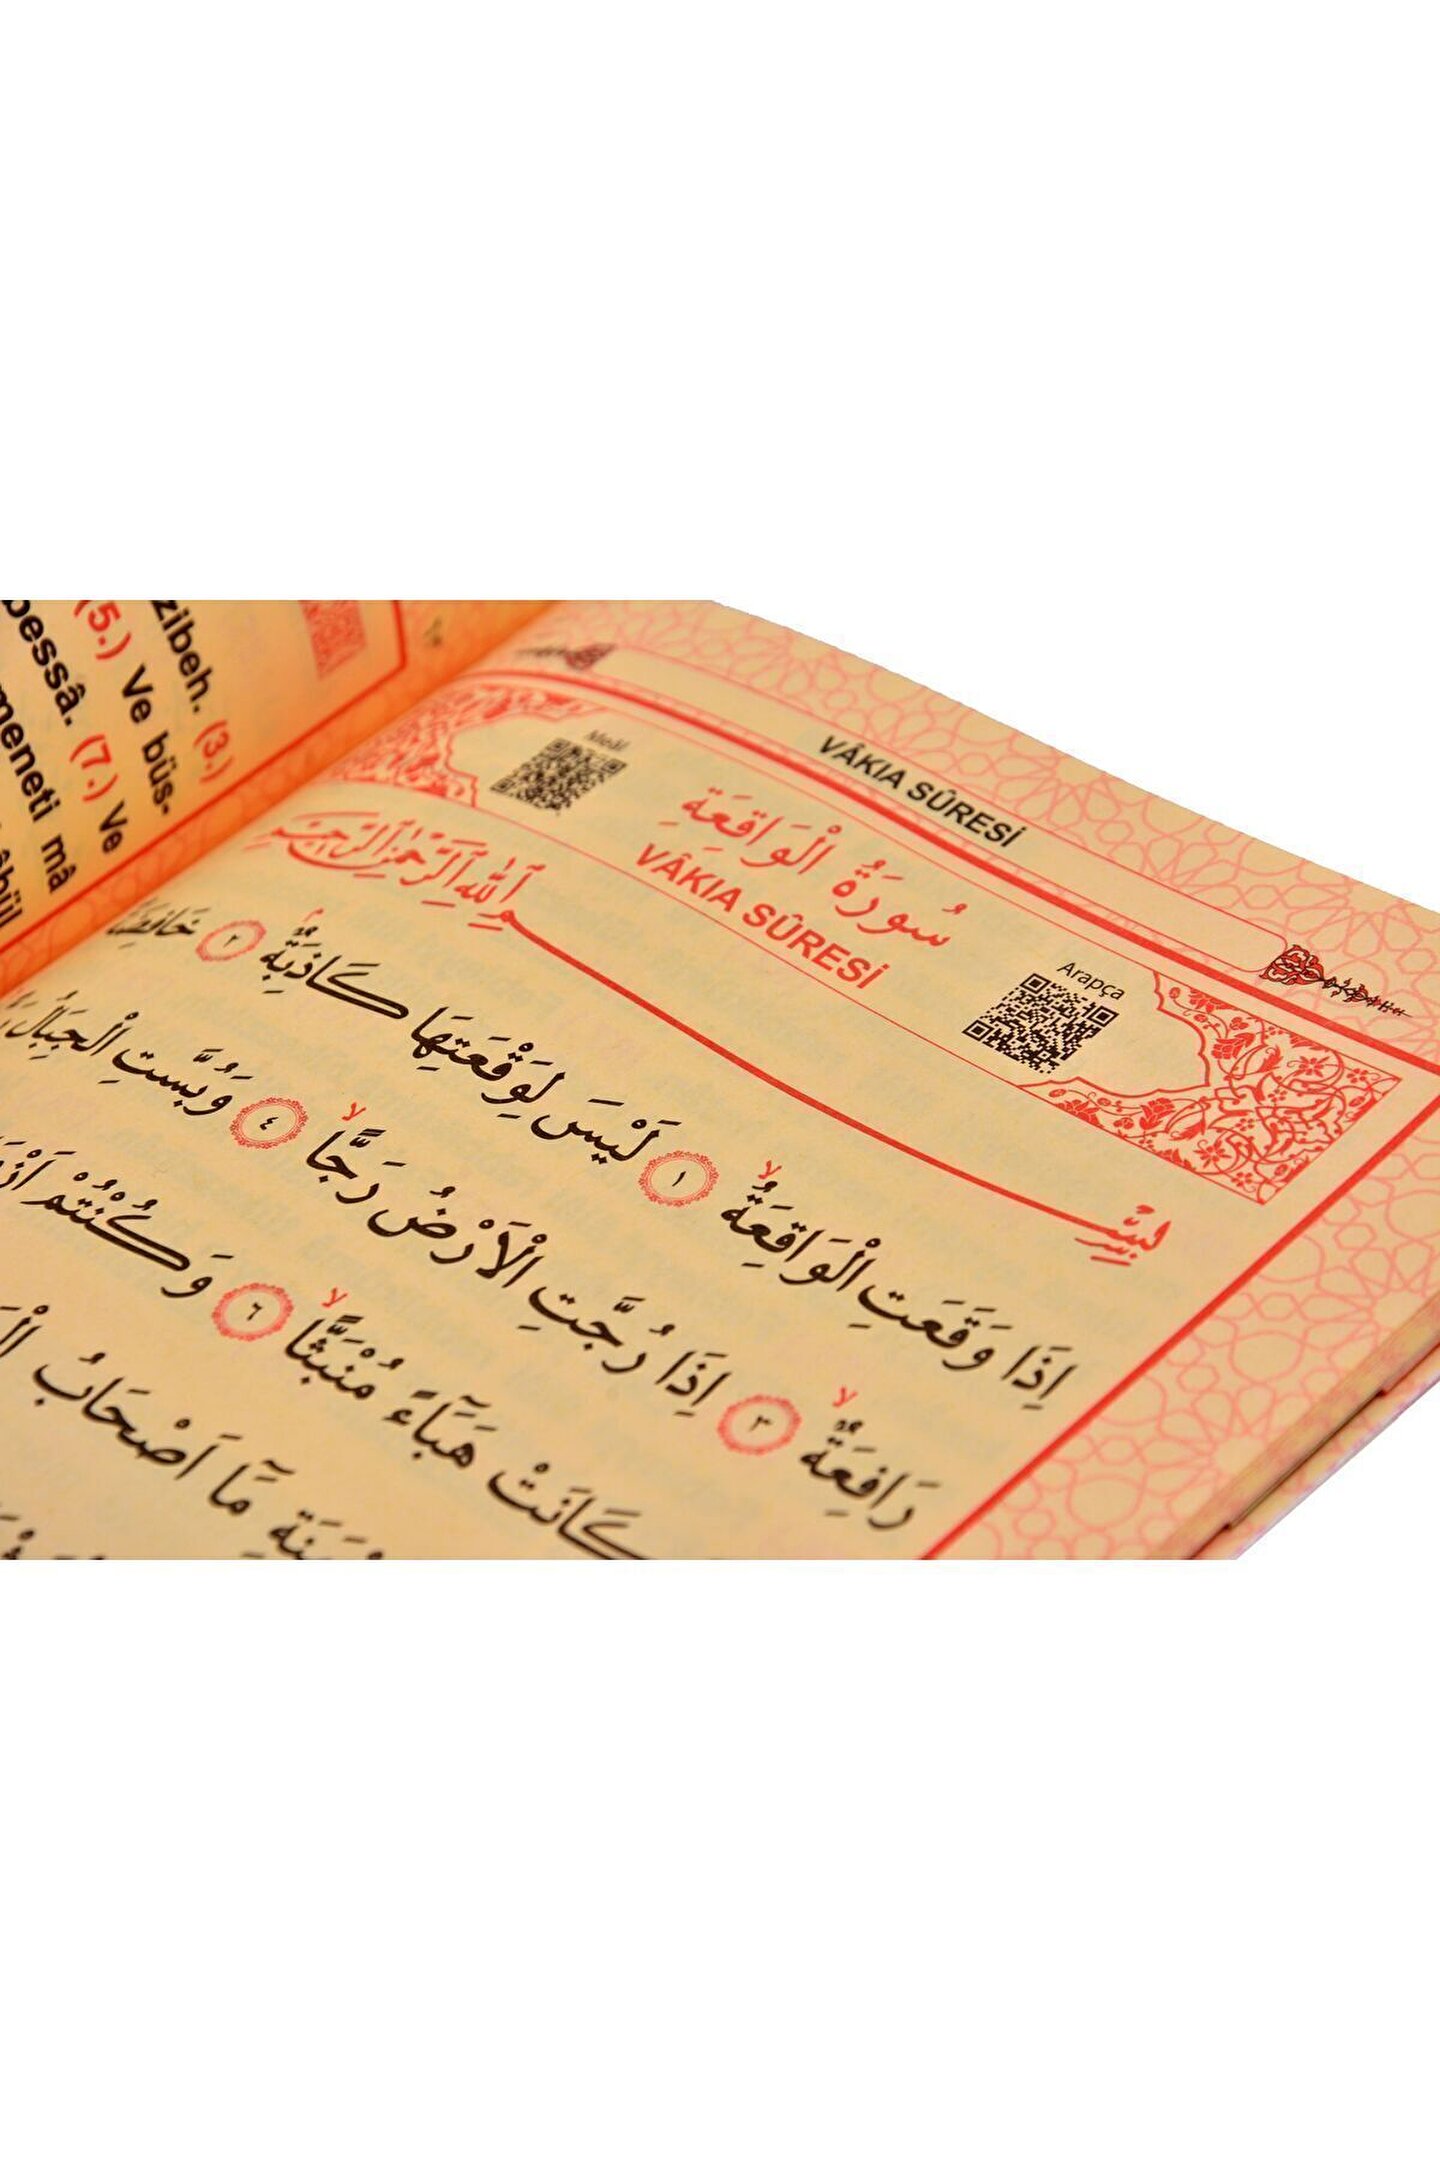 zibeh. (3.)
(5.) Ve büs-
bessâ. (7.) Ve
meneti mâ
VÂKIA SÛRESİ
Meâl
سُورَةُ الْوَاقِعَةِ
VÂKIA SÛRESİ
Arapça
بِسْمِ اللّٰهِ الرَّحْمٰنِ الرَّحِيمِ
اِذَا وَقَعَتِ الْوَاقِعَةُۙ ١ لَيْسَ لِوَقْعَتِهَا كَاذِبَةٌۘ ٢
رَافِعَةٌۙ ٣ اِذَا رُجَّتِ الْاَرْضُ رَجًّاۙ ٤ وَبُسَّتِ الْجِبَالُ
كَانَتْ هَبَٓاءً مُنْبَثًّاۙ ٦ وَكُنْتُمْ
مَٓا اَصْحَابُ